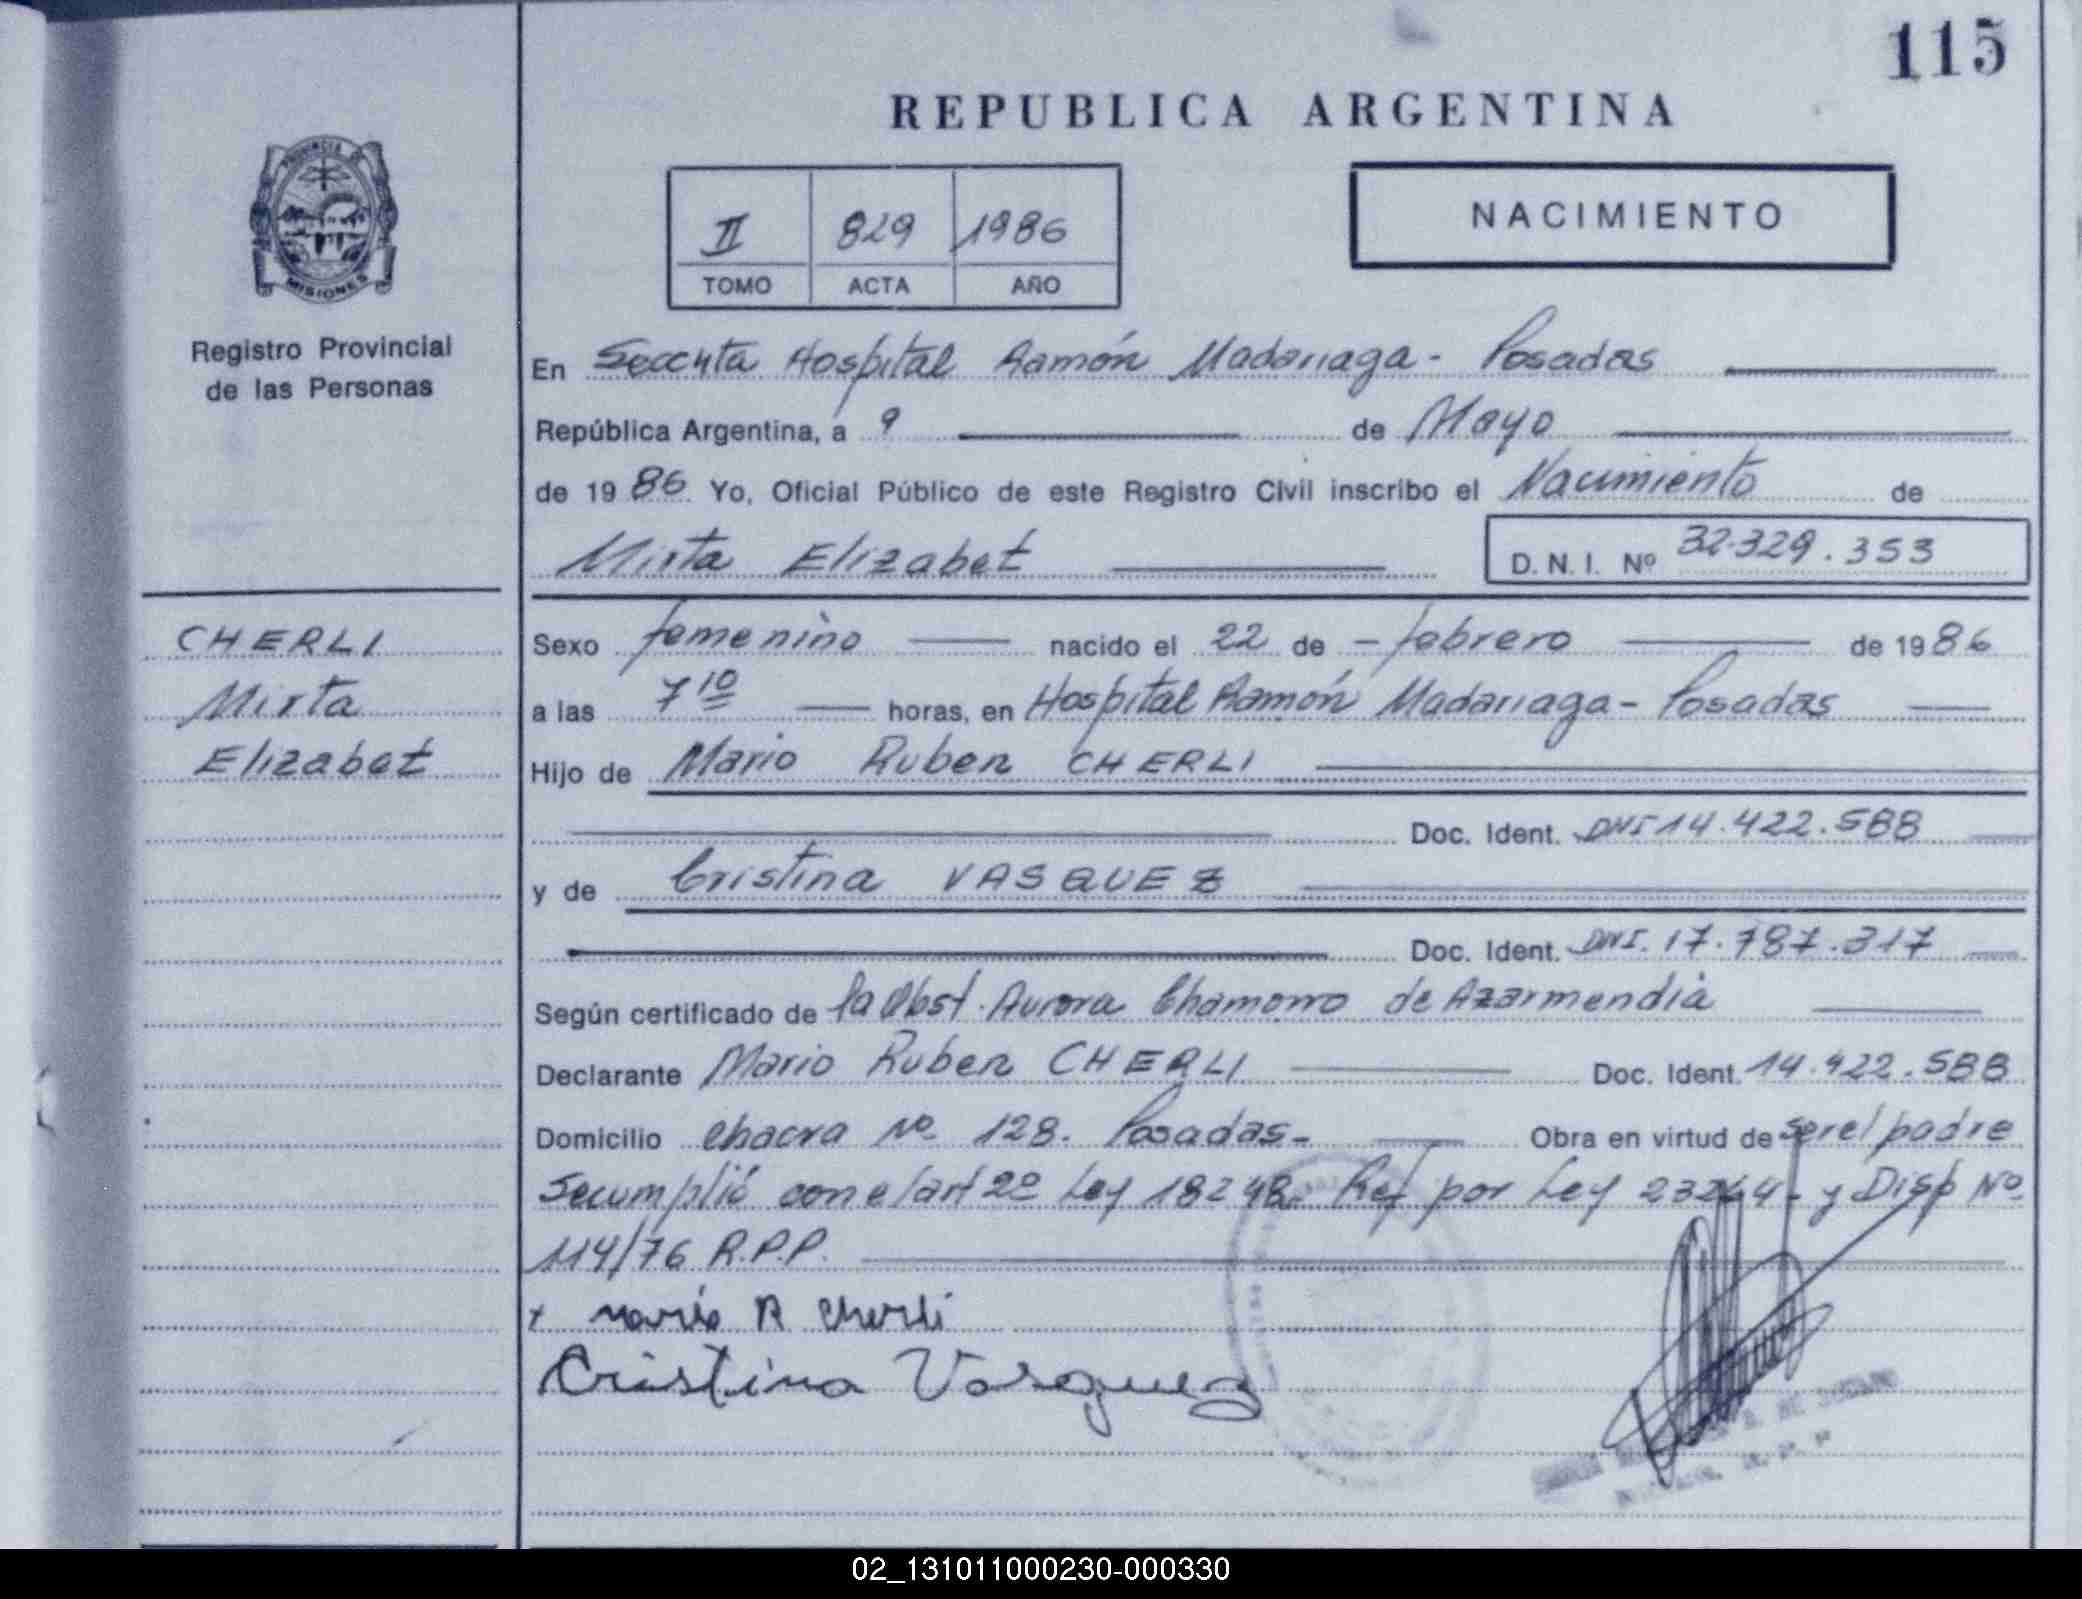 115
REPUBLICA ARGENTINA
PROVINCIA DE
MISIONES
Registro Provincial
de las Personas
II 829 1986
TOMO ACTA AÑO
NACIMIENTO
En Hospital Ramón Madariaga - Posadas
República Argentina, a 9 de Mayo
de 1986 Yo, Oficial Público de este Registro Civil inscribo el Nacimiento de
Mirta Elizabet D. N. I. Nº 32.329.353
CHERLI
Mirta
Elizabet
Sexo femenino nacido el 22 de - febrero de 1986
a las 7 10 horas, en Hospital Ramón Madariaga - Posadas
Hijo de Mario Ruben CHERLI
Doc. Ident. DNI 14.422.588
y de Cristina VASQUEZ
Doc. Ident. DNI. 17.787.317
Según certificado de la Obst. Aurora Chamorro de Azarmendia
Declarante Mario Ruben CHERLI Doc. Ident. 14.422.588
Domicilio chacra Nº 128. Posadas - Obra en virtud de ser el padre
Se cumplió con el art 2º Ley 18248 Ref por Ley 23264 - y Disp Nº
114/76 R.P.P.
x Mario R Cherli
Cristina Vasquez
02_131011000230-000330